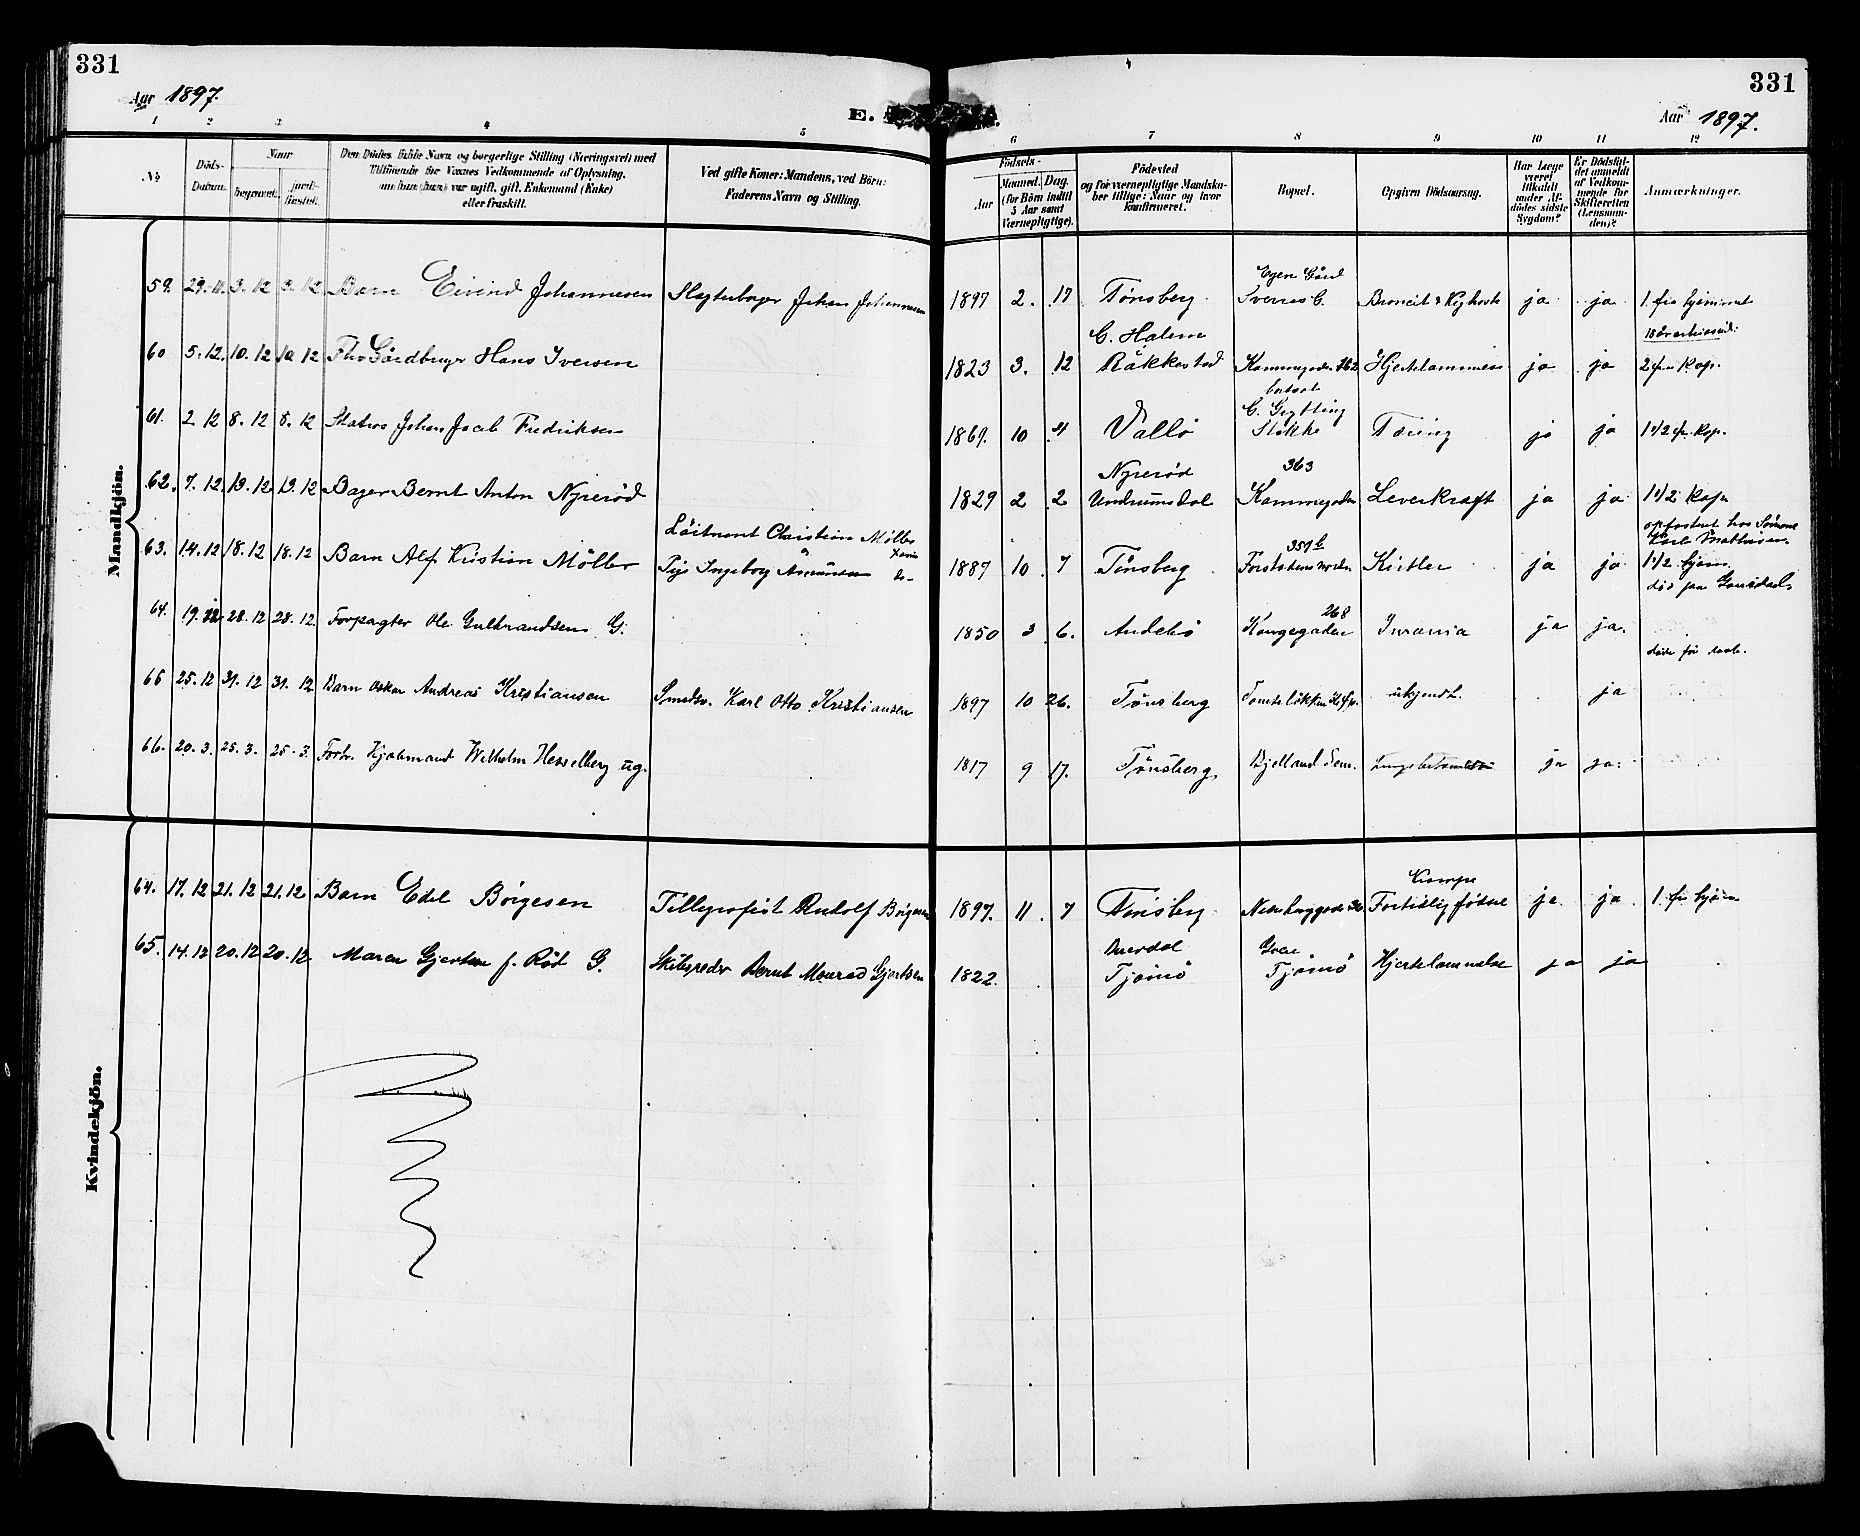 331
331
Aar 1897.
E.
Aar 1897.
1 2 3 4 5 6 7 8 9 10 11 12
No
Döds-Datum.
Naar
begravet.
jord-fæstet.
Den Dödes fulde Navn og borgerlige Stilling (Næringsvei) med
Tilföiende for Voxnes Vedkommende af Oplysning,
om han (hun) var ugift, gift, Enkemand (Enke)
eller fraskilt.
Ved gifte Koner: Mandens, ved Börn:
Faderens Navn og Stilling.
Födsels-
Aar
Maaned. Dag.
(for Börn indtil
5 Aar samt
Værnepligtige).
Födested
og for værnepligtige Mandska-
ber tillige: Naar og hvor
konfirmeret.
Bopæl.
Opgiven Dödsaarsag.
Har Læge
været
tilkaldt
under Af-
dödes sidste
Sygdom?
Er Dödsfal-
det anmeldt
af Vedkom-
mende for
Skifteretten
(Lensman-
den)?
Anmærkninger.
Mandkjön.
59. 29. 11. 3. 12 3. 12 Barn Eivind Johannesen Slagterborger Johan Johannesen 1897 2. 17 Tønsberg Egen Gård Iversens G. Broncit & Kighoste ja ja 1. fra hjemmet
60 5. 12. 10. 12 10. 12 Fhv Gårdbruger Hans Iversen 1823 3. 12 G. Holem Råkkestad Kammegaden 362 Hjertelammelse ja ja 2 fra Kap.
61. 2 12 8. 12 8. 12 Matros Johan Jacob Fredriksen 1869. 10 4 Vallö bortsat G. Grytting Stokke Tæring ja ja 1 1/2 fr. Kap.
62. 7. 12. 13. 12. 13. 12 Bager Bernt Anton Nyrerød 1829 2 2 Nyrerød Undrumsdal 363 Kammegaden Leverkræft ja ja 1 1/2 Kap
63. 14. 12 18. 12 18. 12 Barn Alf Kristian Möller Löitnant Christian Möller Pige Ingeborg Amundsen 1887 10 7 Tönsberg 359 b Kirtler ja ja opfostret hos Karl Mathisen 1 1/2 hjem
64. 19. 12 28. 12 28. 12. Forpagter Ole Gulbrandsen G. 1850 3 6. Andebö 268 Kongegaden Inrania ja ja.
65 25. 12 31. 12 31. 12 Barn Oskar Andreas Kristiansen Smedsv. Karl Otto Kristiansen 1897 10 26. Tønsberg ukjendt. ja døde før daab.
66. 20. 3. 25. 3. 25. 3. Forhv. Wilhelm Hesselberg ug. 1817 9 17. Tønsberg Bjelland Sem. ja ja.
Kvindekjön.
64. 17. 12 21. 12 21. 12 Barn Edel Börgesen Rudolf Börgesen 1897. 11. 7 Tönsberg Krampe Fortidlig födsel ja ja 1. fr hjem
65. 14. 12 20. 12 20. 12 Maren Gjertsen f. Röd G. Skibsreder Bernt Monrad Gjertsen 1822. Tjømö Tjømö Hjertelammelse ja ja